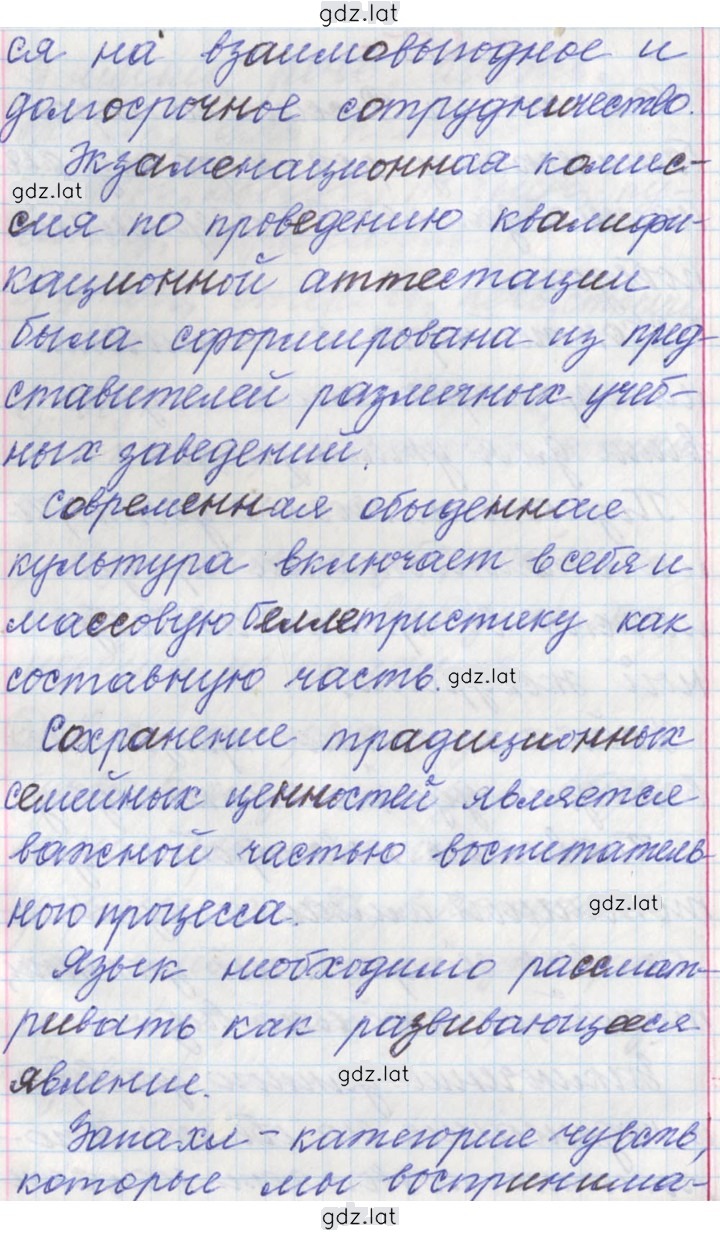 gdz.lat
ся на взаимовыгодное и
долгосрочное сотрудничество.
Экзаменационная комис-
gdz.lat
сия по проведению квалифи-
кационной аттестации
была сформирована из пред-
ставителей различных учеб-
ных заведений.
Современная обыденная
культура включает в себя и
массовую беллетристику как
составную часть.
gdz.lat
Сохранение традиционных
семейных ценностей является
важной частью воспитатель
ного процесса.
gdz.lat
Язык необходимо рассмат-
ривать как развивающееся
явление.
gdz.lat
Запахи - категория чувств,
которые мы воспринима-
gdz.lat